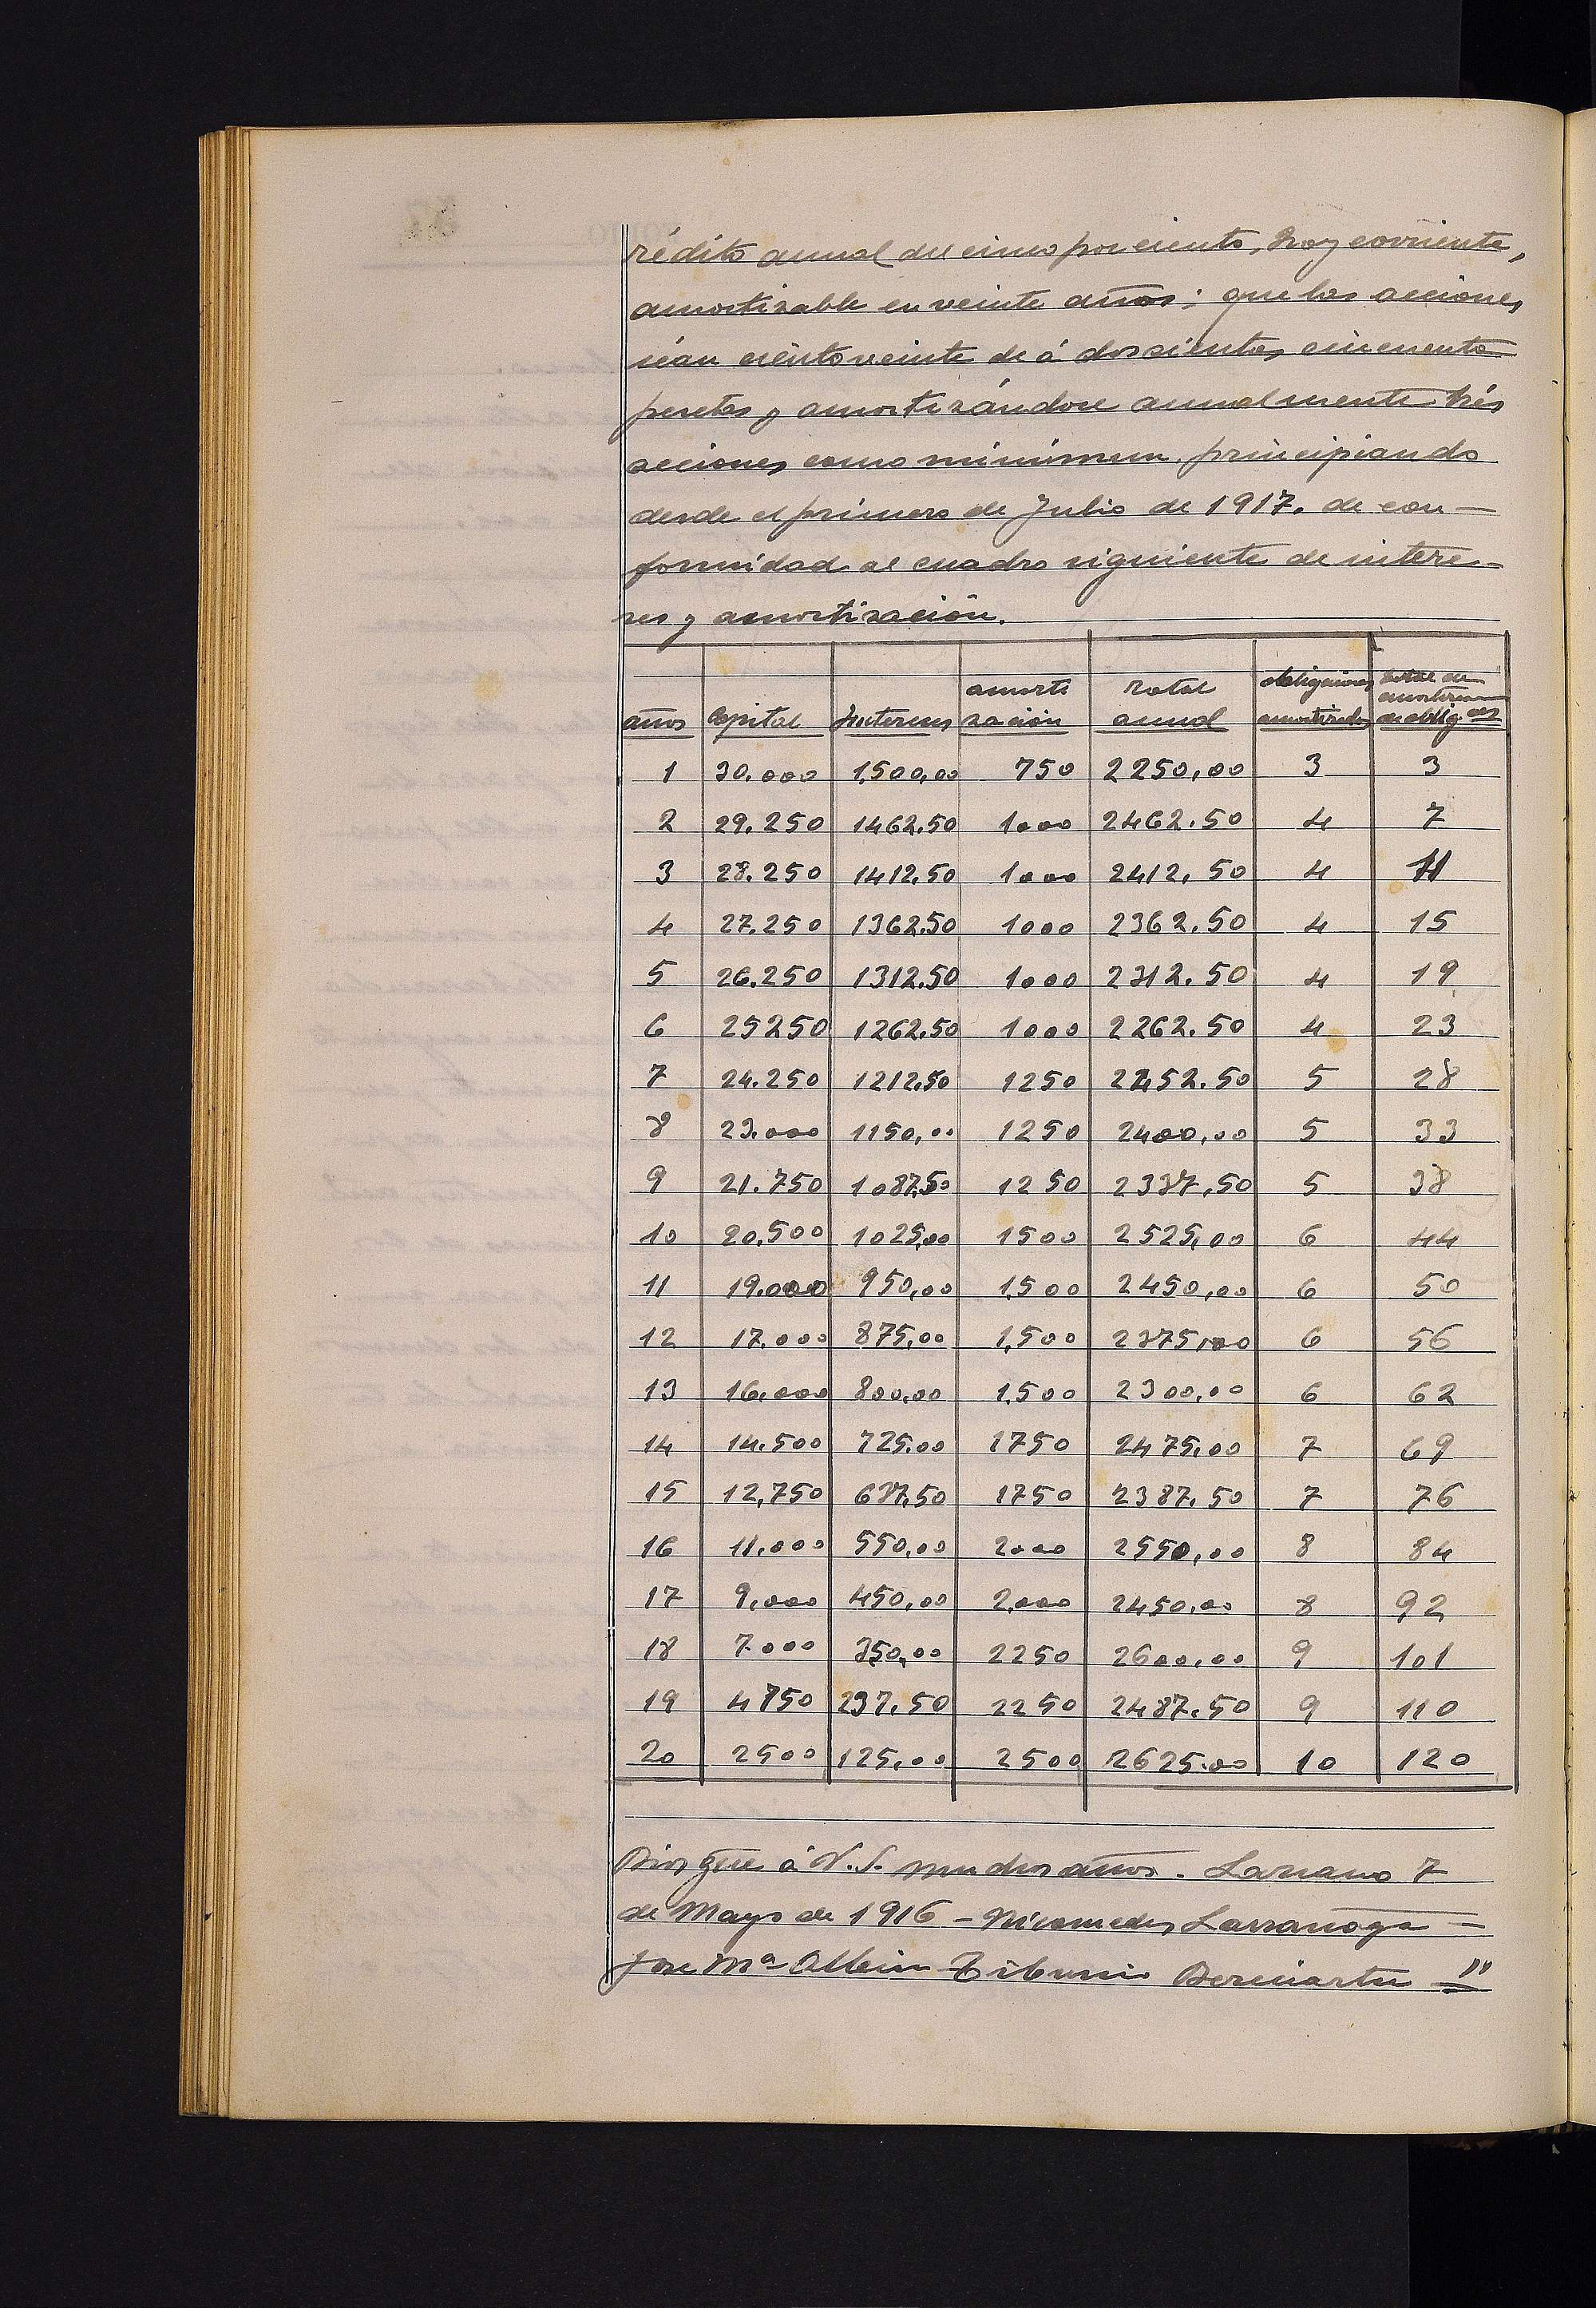 rédito anual del cinco por ciento, hoy corriente,
amortizable en veinte años; que las acciones
sean ciento veinte de á doscientas cincuenta
pesetas y amortizándose anualmente trés
acciones como mínimum, principiando
desde el primero de Julio de 1917. de con-
formidad al cuadro siguiente de intere-
ses y amortización.
años Capital Intereses amorti zación Total anual obligaciones amortizadas total de amortización de oblig.ones
1 30.000 1,500,00 750 2250,00 3 3
2 29.250 1462.50 1000 2462.50 4 7
3 28.250 1412.50 1000 2412,50 4 11
4 27.250 1362.50 1000 2362.50 4 15
5 26.250 1312.50 1000 2312.50 4 19
6 25250 1262.50 1000 2262.50 4 23
7 24.250 1212,50 1250 2452.50 5 28
8 23.000 1150,00 1250 2400,00 5 33
9 21.750 1087,50 1250 2337,50 5 38
10 20.500 1025,00 1500 2525,00 6 44
11 19.000 950,00 1,500 2450,00 6 50
12 17.000 875,00 1,500 2375,00 6 56
13 16,000 800,00 1,500 2300,00 6 62
14 14.500 725.00 1750 2475,00 7 69
15 12,750 637,50 1750 2387,50 7 76
16 11.000 550,00 2000 2550,00 8 84
17 9,000 450,00 2,000 2450,00 8 92
18 7.000 350,00 2250 2600,00 9 101
19 4750 237.50 2250 2487.50 9 110
20 2500 125,00 2500 2625.00 10 120
Dios gue á V.S. muchos años. Lazcano 7
de Mayo de 1916 - Nicomedes Larrañaga -
Jose Mª Albin Tiburcio Bereciartu "